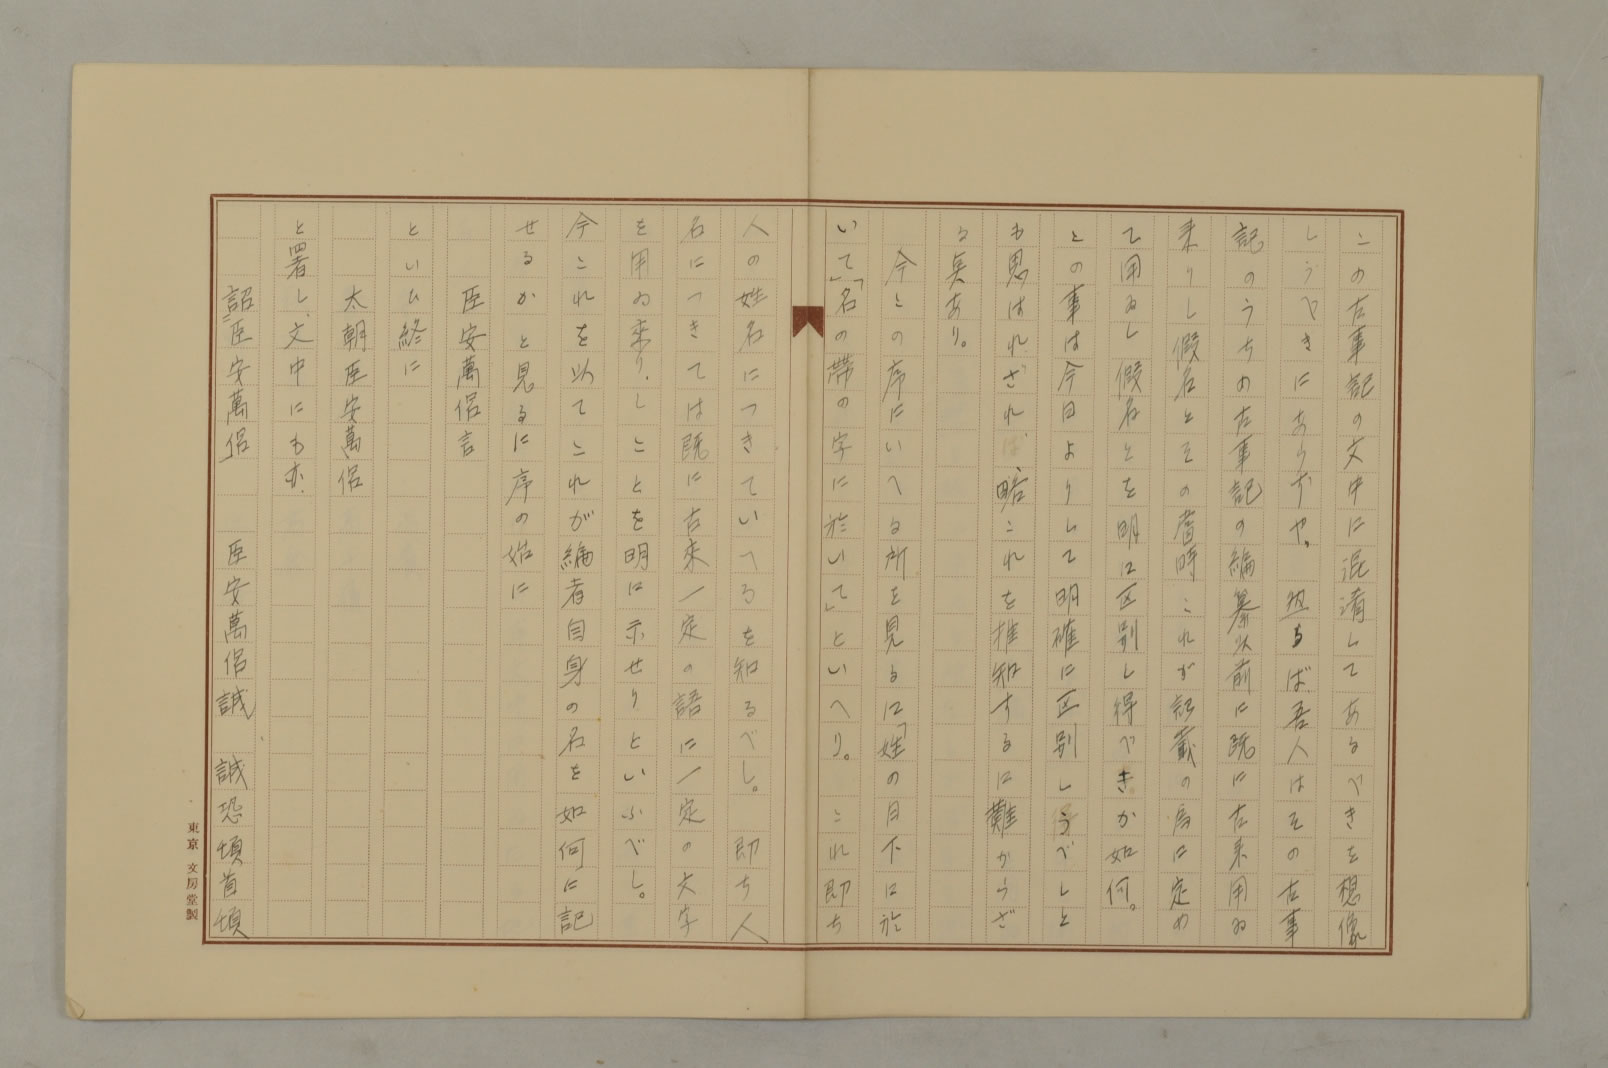 この古事記の文中に混淆してあるべきを想像
しうべきにあらずや。然らば吾人はその古事
記のうちの古事記の編纂以前に既に古来用ゐ
来りし假名とその當時これが記載の為に定め
て用ゐし假名とを明に区別し得べきか如何。
この事は今日よりして明確に区別しうべしと
も思はれざれば、略これを推知するに難からざ
る矣あり。
今この序にいへる所を見るに「姓の日下に於
いて」「名の帶の字に於いて」といへり。これ即ち
人の姓名につきていへるを知るべし。即ち人
名につきては既に古来一定の語に一定の文字
を用ゐ來りしことを明に示せりといふべし。
今これを以てこれが編者自身の名を如何に記
せるかと見るに序の始に
臣安萬侶言
といひ終に
太朝臣安萬侶
と署し、文中にも亦
詔臣安萬侶 臣安萬侶誠 誠恐頓首頓
東京 文房堂製